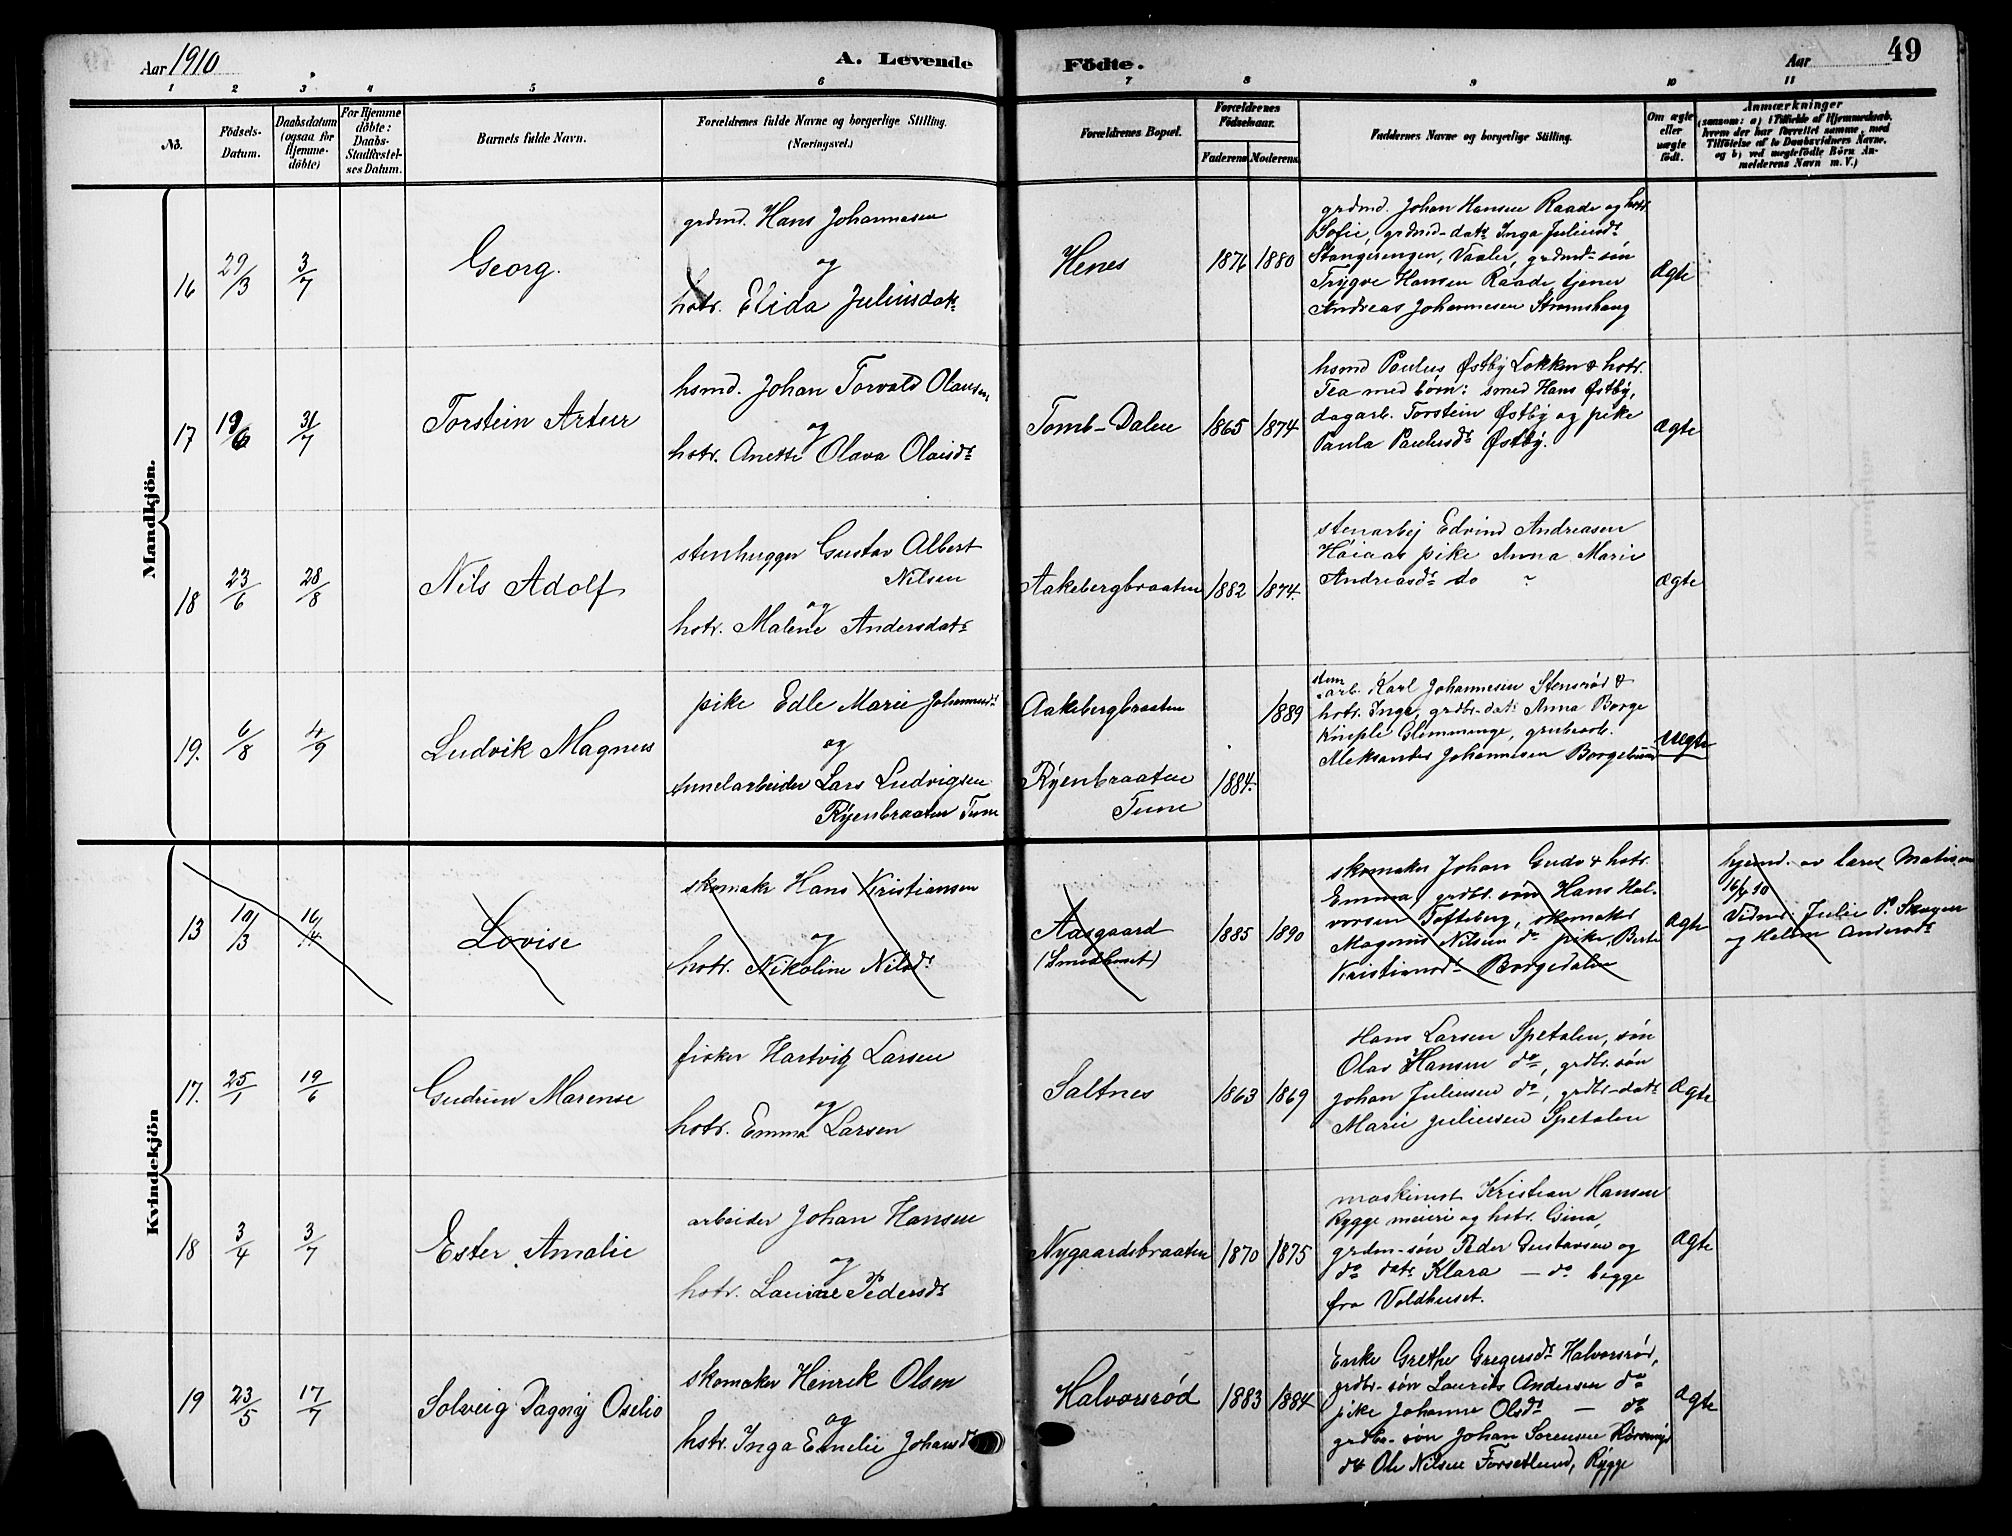 Aar 1910
A. Levende
Födte.
Aar
49
1 2 3 4 5 6 7 8 9 10 11
No.
Födsels-
Datum.
Daabsdatum
(ogsaa for
Hjemme-
döbte)
For Hjemme
döbte:
Daabs-
Stadfæstel-
ses Datum.
Barnets fulde Navn.
Forældrenes fulde Navne og borgerlige Stilling.
(Næringsvei.)
Forældrenes Bopæl.
Forældrenes
Födselsaar.
Faderens
Moderens
Faddernes Navne og borgerlige Stilling.
Om ægte
eller
uægte
födt.
Anmærkninger
(saasom: a) i Tilfælde af Hjemmedaab,
hvem der har forrettet samme, med
Tilföielse af to Daabsvidners Navne,
og b) ved uægtefödte Börn An-
melderens Navn m. V.)
Mandkjön.
16
29/3
3/7
Georg.
grdmd. Hans Johannesen
og
hstr. Elida Juliusdatr
Henes
1876
1880
grdmd. Johan Hansen Raade og hstr.
Sofie, grdmd-datr Inga Juliusdr
Stangesengen, Vaaler, grdmd-søn
Trygve Hansen Raade, tjener
Andreas Johannesen Strømshaug
ægte
17
19/6
31/7
Torstein Artur
hsmd. Johan Torvald Olausen
og
hstr. Anette Olava Olaisdr
Tomb-Dalen
1865
1874
hsmd Paulus Østby Løkken & hstr.
Tea med børn: smed Hans Østby,
dagarb. Torstein Østby og pike
Paula Paulusdr Østby.
ægte
18
23/6
28/8
Nils Adolf
stenhugger Gustav Albert
Nilsen
og
hstr. Malene Andersdatr
Aakebergbraaten
1882
1874.
stenarbej Edvind Andreasen
Høiaas pike Anna Marie
Andreasdr do
ægte
19.
6/8
4/9
Ludvik Magnus
pike Edle Marie Johannesdr
og
tunelarbeider Lars Ludvigsen
Ryenbraaten Tune
Aakebergbraaten
1889
Ryenbraaten
Tune
1884.
sten
arb. Karl Johannesen Stensrød &
hstr. Inga, grdbr-datr Anna Borge
Kniple Glemminge, grubearb.
Aleksander Johannesen Borgebund
uegte
Kvindekjön
13
19/3
16/4
Lovise
skomaker Hans Kristiansen
og
hstr. Nikoline Nilsdr
Aasgaard
(Smedhuset)
1885
1890
skomaker Johan Gude & hstr.
Emma, grdbr. søn Hans Hal-
vorsen Tofteberg, skomaker
Magnus Nilsen do pike, Berte
Kristiansdr Borgedalen
ægte
hjemd. av lærer Matisen
16/4 10
Vidner Julie P. Skogen
og Helene Andersdr
17.
25/1
19/6
Gudrun Marense
fisker Hartvig Larsen
og
hstr. Emma Larsen
Saltnes
1863
1869
Hans Larsen Spetalen, søn
Olav Hansen do, grdbr. søn
Johan Juliusen do, grdbr-datr
Marie Juliusen Spetalen
ægte
18
3/4
3/7
Ester Amalie
arbeider Johan Hansen
og
hstr. Lovise Pedersdr
Nygaardsbraaten
1870
1875
maskinist Kristian Hansen
Rygge meieri og hstr. Gina,
grdm-søn Peder Gustavsen og
do datr Klara — do begge
fra Voldhuset.
ægte
19
23/5
17/7
Solveig Dagny Oselio
skomaker Henrik Olsen
og
hstr. Inga Emelie Johansdr
Halvorsrød
1883
1884
Enke Grethe Gregersdr Halvorsrød,
grdbr-søn Laurits Andersen do
pike Johanne Olsdr — do
grdbr-søn Johan Sørensen
do Ole Nilsen Forsetlund, Rygge
ægte